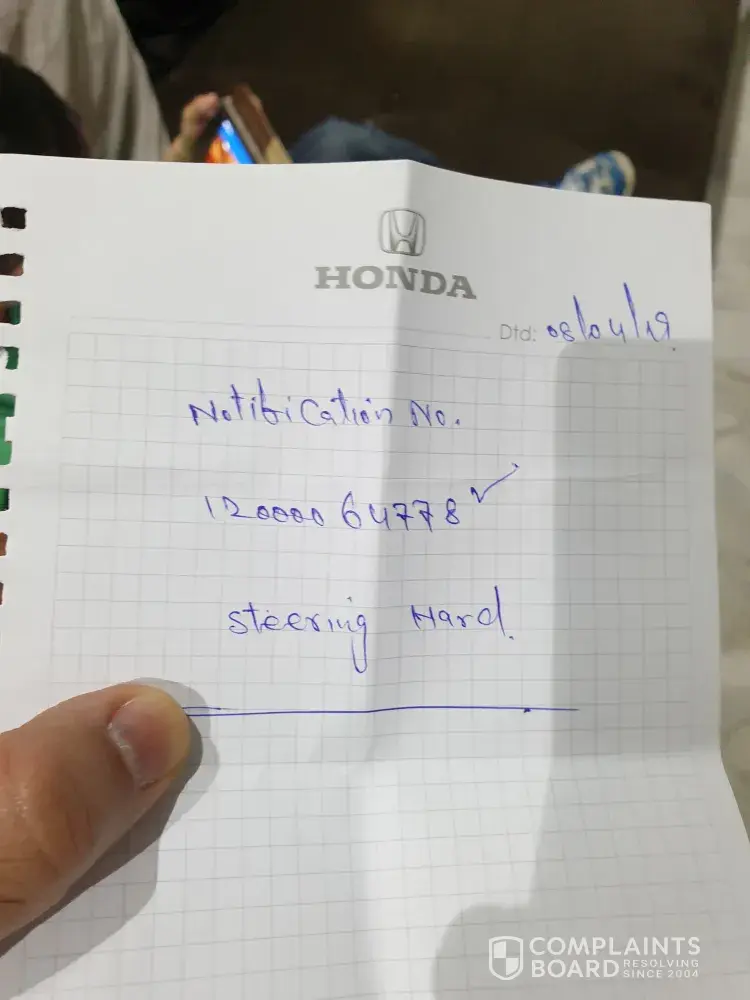 HONDA
Dtd: 08/04/19
Notification No.
120000 64778
Steering Hard.
COMPLAINTS
BOARD RESOLVING
SINCE 2004